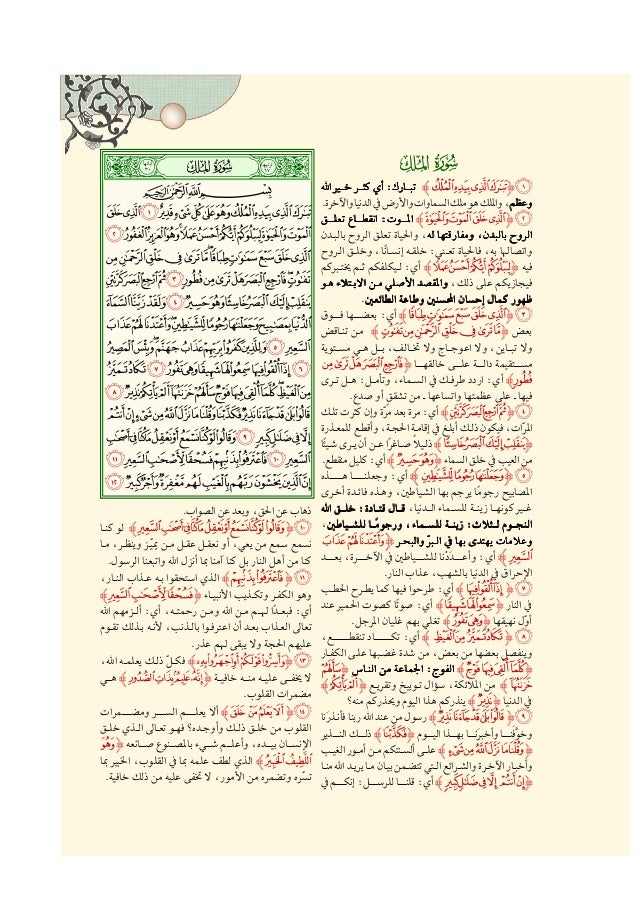 سُورَةُ المُلْك
۝١ ﴿تَبَٰرَكَ ٱلَّذِى بِيَدِهِ ٱلْمُلْكُ﴾ تبارك: أي كثر خير الله
وعظم، والملك هو ملك السماوات والأرض في الدنيا والآخرة.
۝٢ ﴿ٱلَّذِى خَلَقَ ٱلْمَوْتَ وَٱلْحَيَوٰةَ﴾ الموت: انقطاع تعلق
الروح بالبدن، ومفارقتها له، والحياة تعلق الروح بالبدن
واتصالها به، فالحياة تعني: خلقه إنساناً، وخلق الروح
فيه ﴿لِيَبْلُوَكُمْ أَيُّكُمْ أَحْسَنُ عَمَلًا﴾ أي: ليكلفكم ثم يختبركم
فيجازيكم على ذلك، والمقصد الأصلي من الابتلاء هو
ظهور كمال إحسان المحسنين وطاعة الطائعين.
۝٣ ﴿سَبْعَ سَمَٰوَٰتٍ طِبَاقًا﴾ أي: بعضها فوق
بعض ﴿مَّا تَرَىٰ فِى خَلْقِ ٱلرَّحْمَٰنِ مِن تَفَٰوُتٍ﴾ من تناقض
ولا تباين، ولا اعوجاج ولا تخالف، بل هي مستوية
مستقيمة دالة على خالقها ﴿فَٱرْجِعِ ٱلْبَصَرَ هَلْ تَرَىٰ مِن
فُطُورٍ﴾ أي: اردد طرفك في السماء، وتأمل: هل ترى
فيها ـ على عظمتها واتساعها ـ من تشقق أو صدع.
۝٤ ﴿ثُمَّ ٱرْجِعِ ٱلْبَصَرَ كَرَّتَيْنِ﴾ أي: مرة بعد مرة وإن كثرت تلك
المرات، فيكون ذلك أبلغ في إقامة الحجة، وأقطع للمعذرة
﴿يَنقَلِبْ إِلَيْكَ ٱلْبَصَرُ خَاسِئًا﴾ ذليلاً صاغراً عن أن يرى شيئاً
من العيب في خلق السماء ﴿وَهُوَ حَسِيرٌ﴾ أي: كليل منقطع.
۝٥ ﴿وَجَعَلْنَٰهَا رُجُومًا لِّلشَّيَٰطِينِ﴾ أي: وجعلنا هذه
المصابيح رجوماً يرجم بها الشياطين، وهذه فائدة أخرى
غير كونها زينة للسماء الدنيا، قال قتادة: خلق الله
النجوم لثلاث: زينة للسماء، ورجوماً للشياطين،
وعلامات يهتدى بها في البر والبحر ﴿وَأَعْتَدْنَا لَهُمْ عَذَابَ
ٱلسَّعِيرِ﴾ أي: وأعددنا للشياطين في الآخرة، بعد
الإحراق في الدنيا بالشهب، عذاب النار.
۝٧ ﴿إِذَآ أُلْقُوا۟ فِيهَا﴾ أي: طرحوا فيها كما يطرح الحطب
في النار ﴿سَمِعُوا۟ لَهَا شَهِيقًا﴾ أي: صوتاً كصوت الحمير عند
أول نهيقها ﴿وَهِىَ تَفُورُ﴾ تغلي بهم غليان المرجل.
۝٨ ﴿تَكَادُ تَمَيَّزُ مِنَ ٱلْغَيْظِ﴾ أي: تكاد تنقطع،
وينفصل بعضها من بعض، من شدة غضبها على الكفار
﴿كُلَّمَآ أُلْقِىَ فِيهَا فَوْجٌ﴾ الفوج: الجماعة من الناس ﴿سَأَلَهُمْ
خَزَنَتُهَآ﴾ من الملائكة، سؤال توبيخ وتقريع ﴿أَلَمْ يَأْتِكُمْ﴾
في الدنيا ﴿نَذِيرٌ﴾ ينذركم هذا اليوم ويحذركم منه؟
۝٩ ﴿قَالُوا۟ بَلَىٰ قَدْ جَآءَنَا نَذِيرٌ﴾ رسول من عند الله ربنا فأنذرنا
وخوفنا وأخبرنا بهذا اليوم ﴿فَكَذَّبْنَا﴾ ذلك النذير
﴿وَقُلْنَا مَا نَزَّلَ ٱللَّهُ مِن شَىْءٍ﴾ على ألسنتكم من أمور الغيب
وأخبار الآخرة والشرائع التي تتضمن بيان ما يريد الله منا
﴿إِنْ أَنتُمْ إِلَّا فِى ضَلَٰلٍ كَبِيرٍ﴾ أي: قلنا للرسل: إنكم في
سُورَةُ المُلْك
بِسْمِ ٱللَّهِ ٱلرَّحْمَٰنِ ٱلرَّحِيمِ
تَبَٰرَكَ ٱلَّذِى بِيَدِهِ ٱلْمُلْكُ وَهُوَ عَلَىٰ كُلِّ شَىْءٍ قَدِيرٌ ۝١ ٱلَّذِى خَلَقَ
ٱلْمَوْتَ وَٱلْحَيَوٰةَ لِيَبْلُوَكُمْ أَيُّكُمْ أَحْسَنُ عَمَلًا وَهُوَ ٱلْعَزِيزُ ٱلْغَفُورُ ۝٢
ٱلَّذِى خَلَقَ سَبْعَ سَمَٰوَٰتٍ طِبَاقًا مَّا تَرَىٰ فِى خَلْقِ ٱلرَّحْمَٰنِ مِن
تَفَٰوُتٍ فَٱرْجِعِ ٱلْبَصَرَ هَلْ تَرَىٰ مِن فُطُورٍ ۝٣ ثُمَّ ٱرْجِعِ ٱلْبَصَرَ كَرَّتَيْنِ
يَنقَلِبْ إِلَيْكَ ٱلْبَصَرُ خَاسِئًا وَهُوَ حَسِيرٌ ۝٤ وَلَقَدْ زَيَّنَّا ٱلسَّمَآءَ
ٱلدُّنْيَا بِمَصَٰبِيحَ وَجَعَلْنَٰهَا رُجُومًا لِّلشَّيَٰطِينِ وَأَعْتَدْنَا لَهُمْ عَذَابَ
ٱلسَّعِيرِ ۝٥ وَلِلَّذِينَ كَفَرُوا۟ بِرَبِّهِمْ عَذَابُ جَهَنَّمَ وَبِئْسَ ٱلْمَصِيرُ
۝٦ إِذَآ أُلْقُوا۟ فِيهَا سَمِعُوا۟ لَهَا شَهِيقًا وَهِىَ تَفُورُ ۝٧ تَكَادُ تَمَيَّزُ
مِنَ ٱلْغَيْظِ كُلَّمَآ أُلْقِىَ فِيهَا فَوْجٌ سَأَلَهُمْ خَزَنَتُهَآ أَلَمْ يَأْتِكُمْ نَذِيرٌ ۝٨
قَالُوا۟ بَلَىٰ قَدْ جَآءَنَا نَذِيرٌ فَكَذَّبْنَا وَقُلْنَا مَا نَزَّلَ ٱللَّهُ مِن شَىْءٍ إِنْ أَنتُمْ
إِلَّا فِى ضَلَٰلٍ كَبِيرٍ ۝٩ وَقَالُوا۟ لَوْ كُنَّا نَسْمَعُ أَوْ نَعْقِلُ مَا كُنَّا فِىٓ أَصْحَٰبِ
ٱلسَّعِيرِ ۝١٠ فَٱعْتَرَفُوا۟ بِذَنۢبِهِمْ فَسُحْقًا لِّأَصْحَٰبِ ٱلسَّعِيرِ ۝١١
إِنَّ ٱلَّذِينَ يَخْشَوْنَ رَبَّهُم بِٱلْغَيْبِ لَهُم مَّغْفِرَةٌ وَأَجْرٌ كَبِيرٌ ۝١٢
ذهاب عن الحق، وبعد عن الصواب.
۝١٠ ﴿وَقَالُوا۟ لَوْ كُنَّا نَسْمَعُ أَوْ نَعْقِلُ مَا كُنَّا فِىٓ أَصْحَٰبِ ٱلسَّعِيرِ﴾ لو كنا
نسمع سمع من يعي، أو نعقل عقل من يميز وينظر، ما
كنا من أهل النار بل كنا آمنا بما أنزل الله واتبعنا الرسول.
۝١١ ﴿فَٱعْتَرَفُوا۟ بِذَنۢبِهِمْ﴾ الذي استحقوا به عذاب النار،
وهو الكفر وتكذيب الأنبياء ﴿فَسُحْقًا لِّأَصْحَٰبِ ٱلسَّعِيرِ﴾
أي: فبعداً لهم من الله ومن رحمته، أي: ألزمهم الله
تعالى العذاب بعد أن اعترفوا بالذنب، لأنه بذلك تقوم
عليهم الحجة ولا يبقى لهم عذر.
۝١٣ ﴿وَأَسِرُّوا۟ قَوْلَكُمْ أَوِ ٱجْهَرُوا۟ بِهِۦٓ﴾ فكل ذلك يعلمه الله،
لا يخفى عليه منه خافية ﴿إِنَّهُۥ عَلِيمٌۢ بِذَاتِ ٱلصُّدُورِ﴾ هي
مضمرات القلوب.
۝١٤ ﴿أَلَا يَعْلَمُ مَنْ خَلَقَ﴾ ألا يعلم السر ومضمرات
القلوب من خلق ذلك وأوجده؟ فهو تعالى الذي خلق
الإنسان بيده، وأعلم شيء بالمصنوع صانعه ﴿وَهُوَ
ٱللَّطِيفُ ٱلْخَبِيرُ﴾ الذي لطف علمه بما في القلوب، الخبير بما
تسره وتضمره من الأمور، لا تخفى عليه من ذلك خافية.